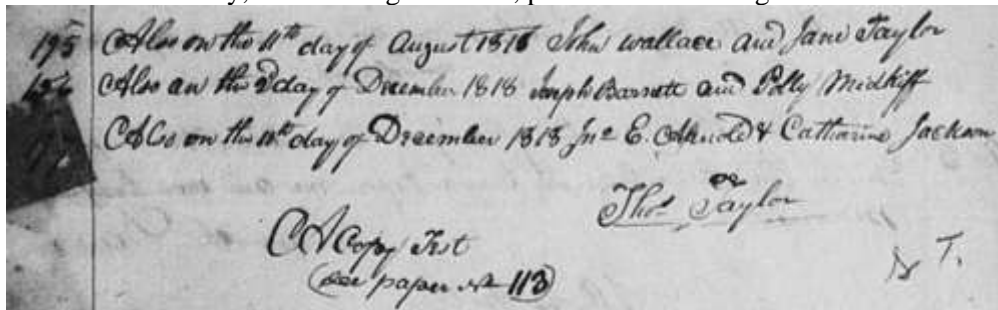 195 Also on the 11th day of August 1818 John Wallace and Jane Taylor
196 Also on the 2d day of December 1818 Joseph Barnett and Polly Midkiff
Also on the 10th day of December 1818 Jno E. Arnold & Catharine Jackson
Thos Taylor
A Copy Test
(see paper No 113)
T.